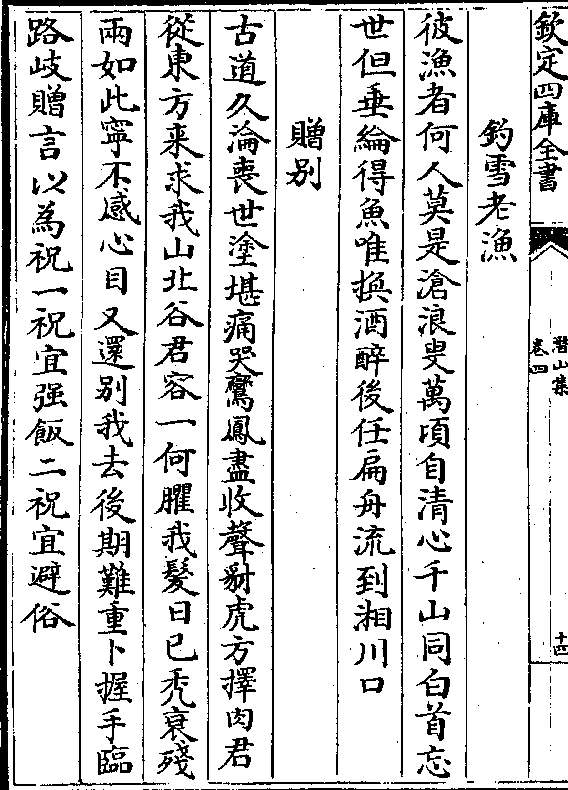 欽定四庫全書
潛山集
卷四
十四
釣雪老漁
彼漁者何人莫是滄浪叟萬頃自清心千山同白首忘
世但垂綸得魚唯換酒醉後任扁舟流到湘川口
贈别
古道久淪喪世塗堪痛哭鸞鳳盡收聲豺虎方擇肉君
從東方来求我山北谷君容一何臞我髮日已秃衰殘
兩如此寜不感心目又還别我去後期難重卜握手臨
路岐贈言以為祝一祝宜强飯二祝宜避俗